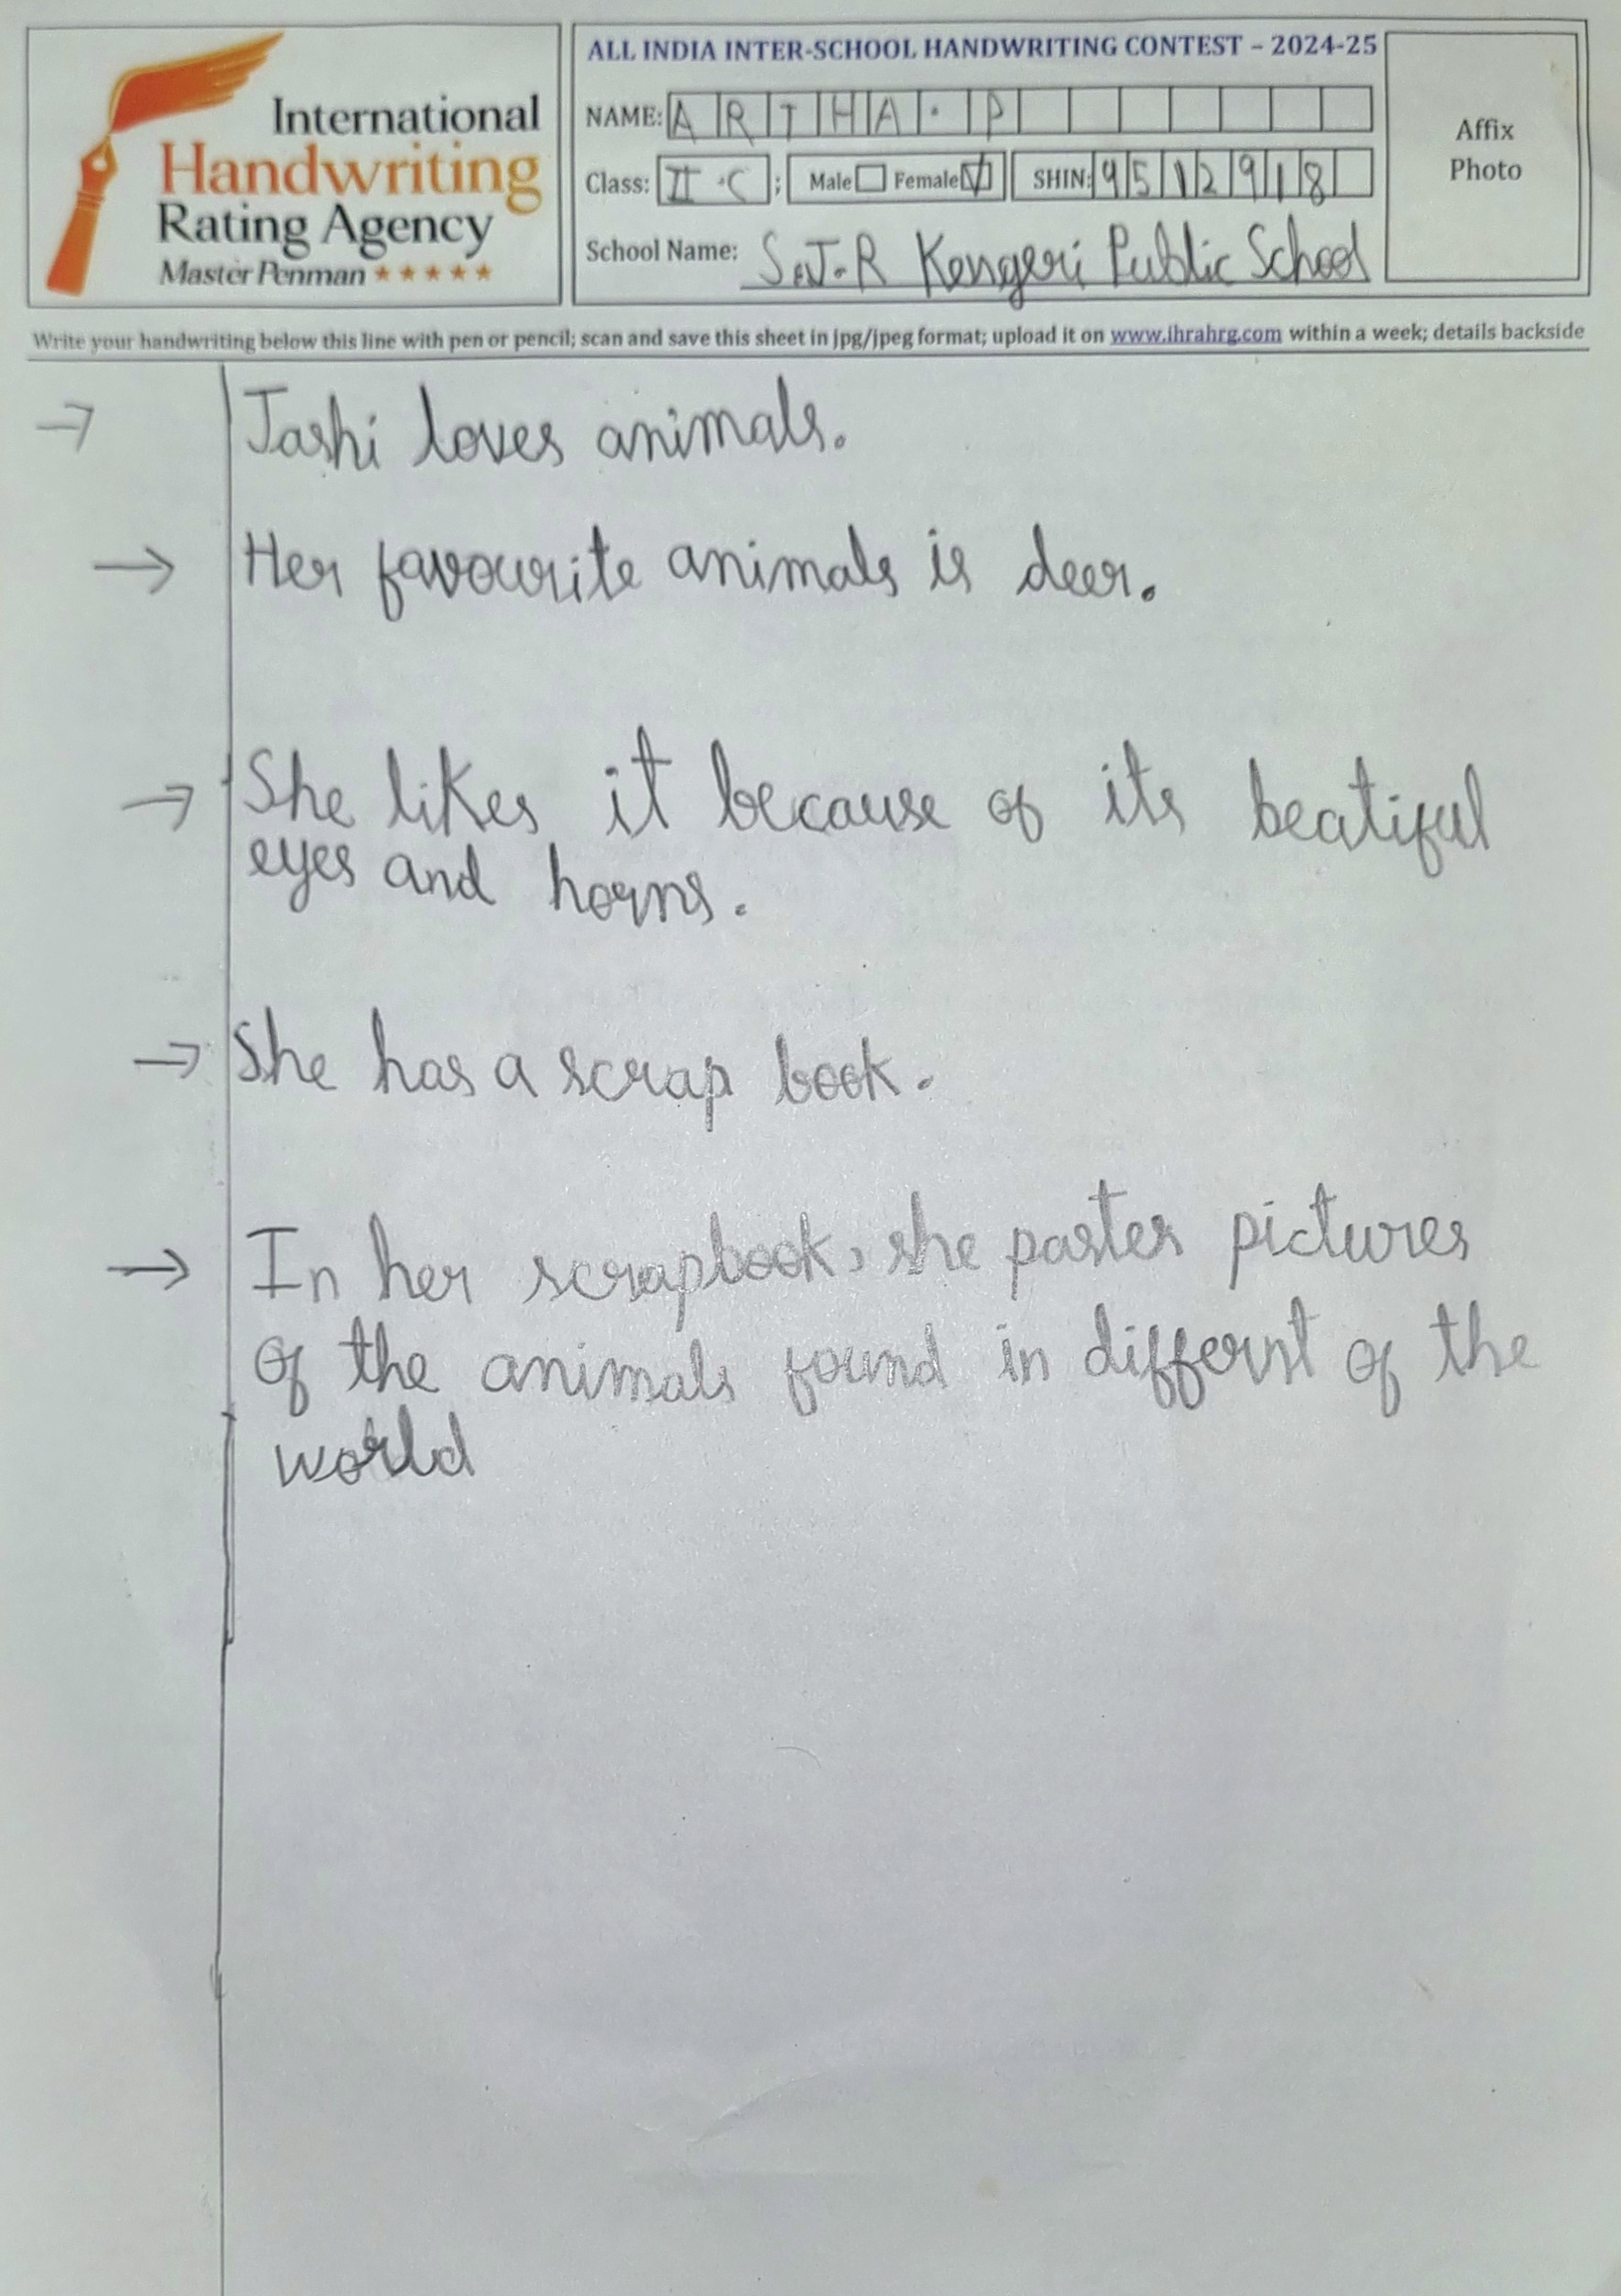 International
Handwriting
Rating Agency
Master Penman ★★★★★
ALL INDIA INTER-SCHOOL HANDWRITING CONTEST – 2024-25
NAME: ARTHA.P
Class: II-C ; Male Female SHIN: 9512918
School Name: S.J.R Kengeri Public School
Affix
Photo
Write your handwriting below this line with pen or pencil; scan and save this sheet in jpg/jpeg format; upload it on www.ihrahrg.com within a week; details backside
→ Tashi loves animals.
→ Her favourite animals is deer.
→ She likes it because of its beatiful
eyes and horns.
→ She has a scrap book.
→ In her scrapbook, she pastes pictures
of the animals found in differnt of the
world